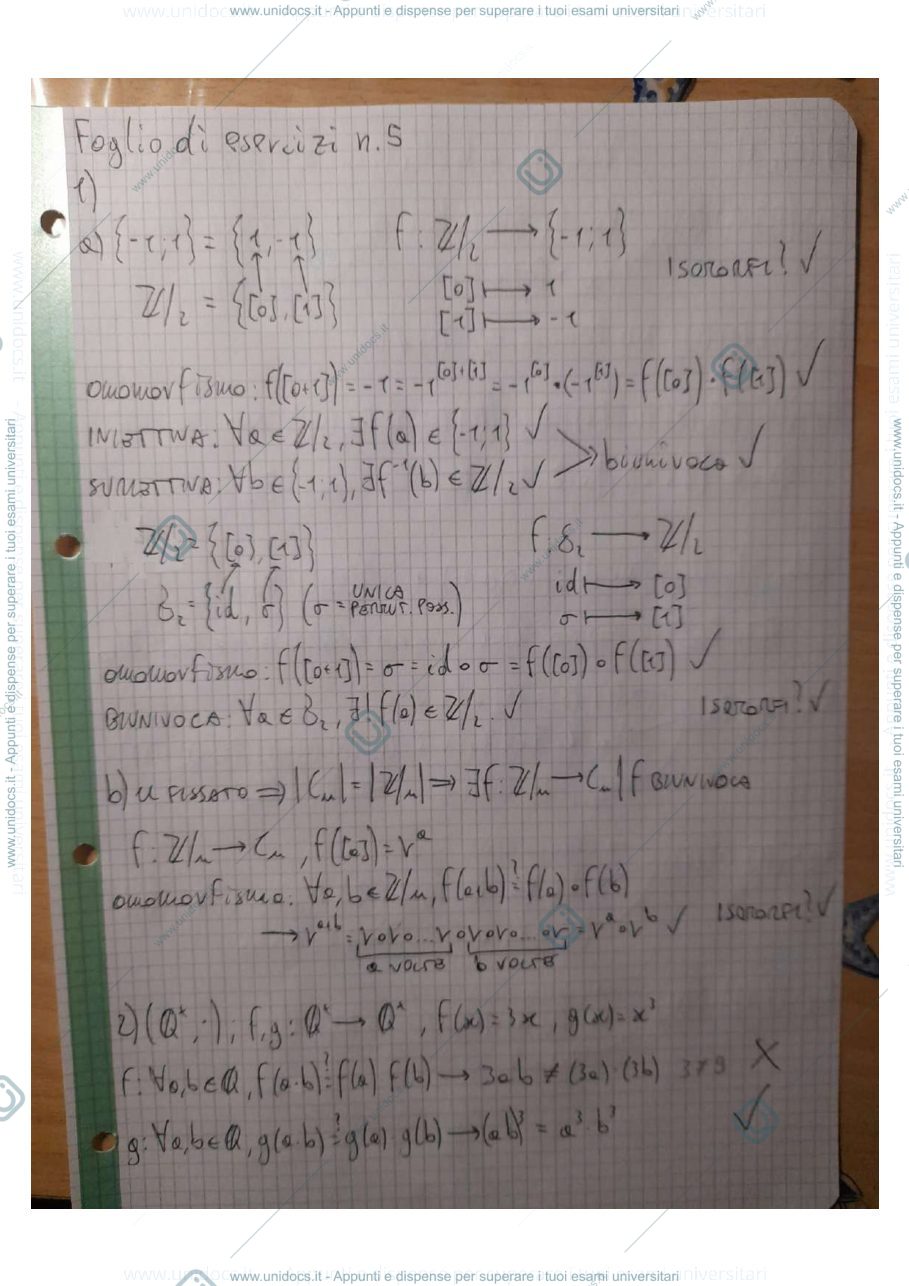 www.unidocs.it - Appunti e dispense per superare i tuoi esami universitari
Foglio di esercizi n.5
1)
a) {-1;1} = {1,-1} f: Z/2 → {-1;1}
ISOMORFI? ✓
Z/2 = {[0],[1]} [0] ↦ 1
[1] ↦ -1
omomorfismo: f([0+1]) = -1 = -1^{[0]+[1]} = -1^{[0]}·(-1^{[1]}) = f([0])·f([1]) ✓
INIETTIVA: ∀a∈Z/2, ∃f(a)∈{-1;1} ✓
> biunivoca ✓
SURIETTIVA: ∀b∈{-1;1}, ∃f⁻¹(b)∈Z/2 ✓
Z/2 = {[0],[1]} f: S₂ → Z/2
S₂ = {id, σ} (σ = UNICA PERMUT. POSS.) id ↦ [0]
σ ↦ [1]
omomorfismo: f([0+1]) = σ = id∘σ = f([0])∘f([1]) ✓
BIUNIVOCA: ∀a∈S₂, ∃! f(a)∈Z/2 ✓ ISOMORFI? ✓
b) n FISSATO ⇒ |Cn| = |Z/n| ⇒ ∃f: Z/n → Cn | f BIUNIVOCA
f: Z/n → Cn, f([a]) = r^a
omomorfismo: ∀a,b∈Z/n, f(a+b) ≟ f(a)∘f(b)
→ r^{a+b} = r∘r∘...r∘r∘r∘r∘...∘r = r^a∘r^b ✓ ISOMORFI? ✓
a VOLTE b VOLTE
2) (Q*,·); f,g: Q* → Q*, f(x) = 3x, g(x) = x³
f: ∀a,b∈Q, f(a·b) ≟ f(a) f(b) → 3ab ≠ (3a)·(3b) 3≠9 X
g: ∀a,b∈Q, g(a·b) ≟ g(a) g(b) → (ab)³ = a³·b³ ✓
www.unidocs.it - Appunti e dispense per superare i tuoi esami universitari